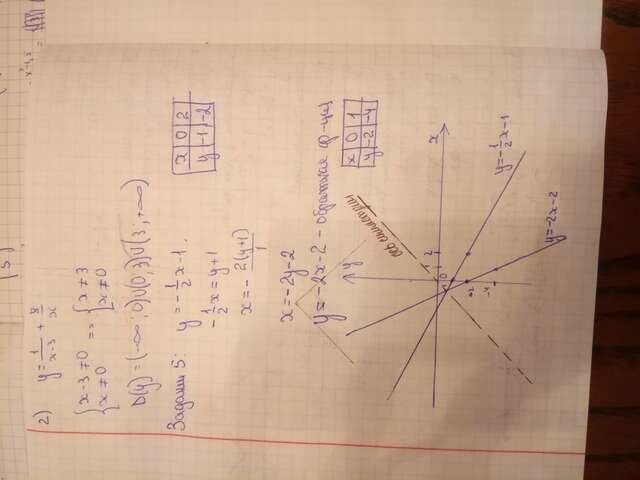 2) y = 1/(x-3) + 8/x
{x-3 ≠ 0 {x ≠ 3
{x ≠ 0 {x ≠ 0
D(y) = (-∞; 0)∪(0; 3)∪(3; +∞)
Задание 5: y = -1/2 x - 1.
-1/2 x = y+1
x = - 2(y+1)/1
x = -2y-2
y = -2x-2 - обратная ф-ция
x 0 2
y -1 -2
x 0 1
y -2 -4
y
x
0
1 2
-2
-4
ось симметрии
y = -1/2 x - 1
y = -2x-2